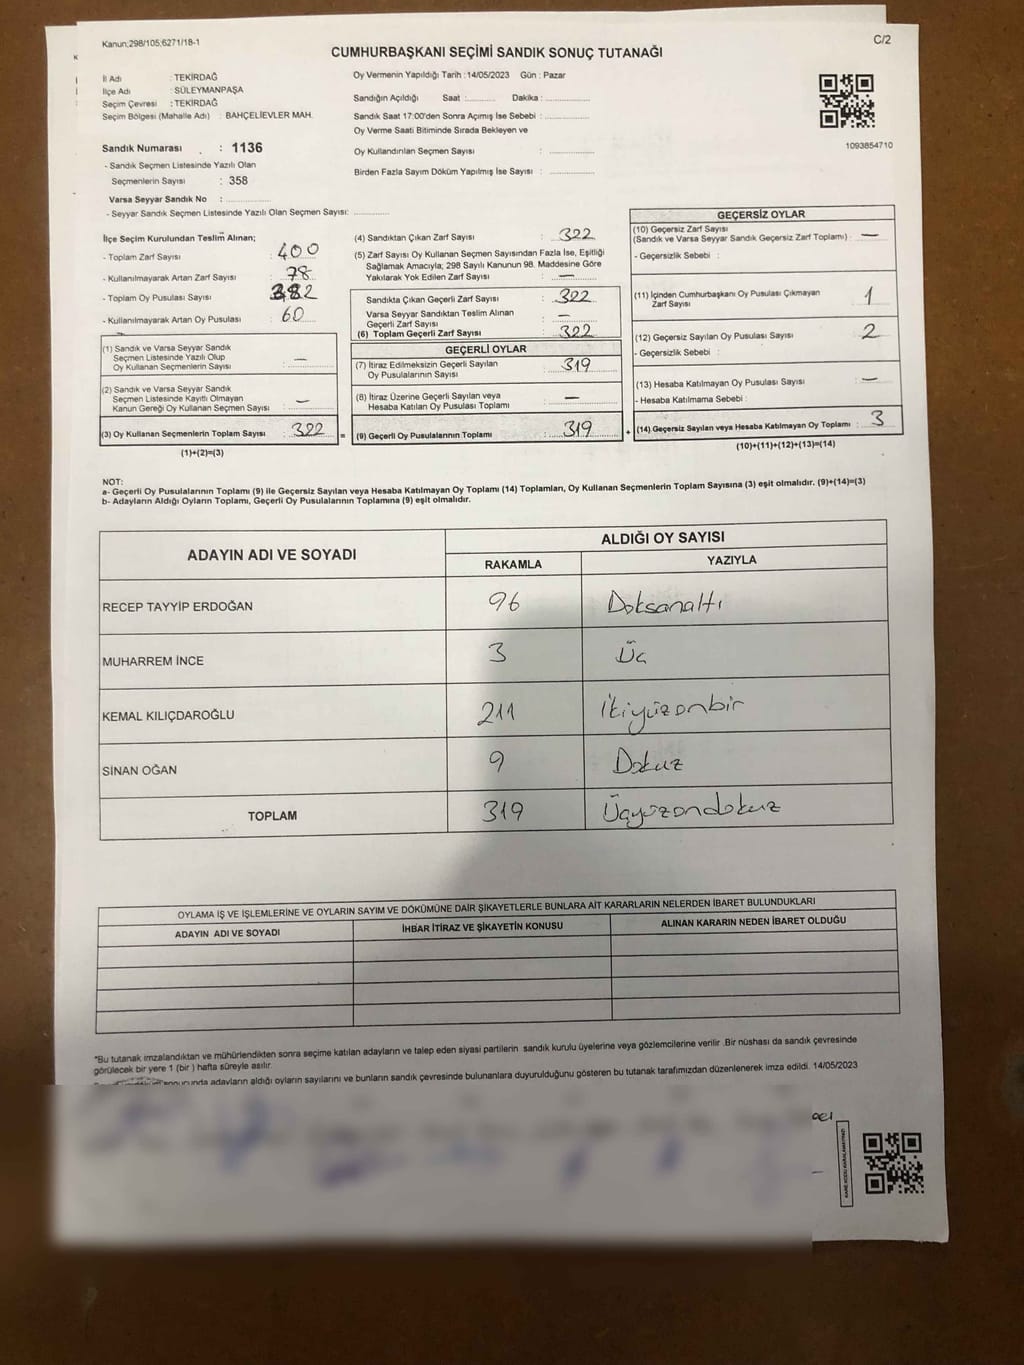 Kanun;298/105;6271/18-1
C/2
CUMHURBAŞKANI SEÇİMİ SANDIK SONUÇ TUTANAĞI
İl Adı : TEKİRDAĞ
İlçe Adı : SÜLEYMANPAŞA
Seçim Çevresi : TEKİRDAĞ
Seçim Bölgesi (Mahalle Adı) : BAHÇELİEVLER MAH.
Sandık Numarası : 1136
- Sandık Seçmen Listesinde Yazılı Olan
Seçmenlerin Sayısı : 358
Varsa Seyyar Sandık No :
- Seyyar Sandık Seçmen Listesinde Yazılı Olan Seçmen Sayısı:
Oy Vermenin Yapıldığı Tarih :14/05/2023 Gün : Pazar
Sandığın Açıldığı Saat : Dakika :
Sandık Saat 17:00'den Sonra Açımış İse Sebebi :
Oy Verme Saati Bitiminde Sırada Bekleyen ve
Oy Kullandırılan Seçmen Sayısı :
Birden Fazla Sayım Döküm Yapılmış İse Sayısı :
1093854710
İlçe Seçim Kurulundan Teslim Alınan;
- Toplam Zarf Sayısı : 400
- Kullanılmayarak Artan Zarf Sayısı : 78
- Toplam Oy Pusulası Sayısı : 382
- Kullanılmayarak Artan Oy Pusulası : 60
(1) Sandık ve Varsa Seyyar Sandık
Seçmen Listesinde Yazılı Olup
Oy Kullanan Seçmenlerin Sayısı : —
(2) Sandık ve Varsa Seyyar Sandık
Seçmen Listesinde Kayıtlı Olmayan
Kanun Gereği Oy Kullanan Seçmen Sayısı : —
(3) Oy Kullanan Seçmenlerin Toplam Sayısı : 322
(1)+(2)=(3)
(4) Sandıktan Çıkan Zarf Sayısı : 322
(5) Zarf Sayısı Oy Kullanan Seçmen Sayısından Fazla İse, Eşitliği
Sağlamak Amacıyla; 298 Sayılı Kanunun 98. Maddesine Göre
Yakılarak Yok Edilen Zarf Sayısı : —
Sandıkta Çıkan Geçerli Zarf Sayısı : 322
Varsa Seyyar Sandıktan Teslim Alınan
Geçerli Zarf Sayısı : —
(6) Toplam Geçerli Zarf Sayısı : 322
GEÇERLİ OYLAR
(7) İtiraz Edilmeksizin Geçerli Sayılan
Oy Pusulalarının Sayısı : 319
(8) İtiraz Üzerine Geçerli Sayılan veya
Hesaba Katılan Oy Pusulası Toplamı : —
= (9) Geçerli Oy Pusulalarının Toplamı : 319
GEÇERSİZ OYLAR
(10) Geçersiz Zarf Sayısı
(Sandık ve Varsa Seyyar Sandık Geçersiz Zarf Toplamı) : —
- Geçersizlik Sebebi :
(11) İçinden Cumhurbaşkanı Oy Pusulası Çıkmayan
Zarf Sayısı : 1
(12) Geçersiz Sayılan Oy Pusulası Sayısı : 2
- Geçersizlik Sebebi :
(13) Hesaba Katılmayan Oy Pusulası Sayısı : —
- Hesaba Katılmama Sebebi :
+ (14) Geçersiz Sayılan veya Hesaba Katılmayan Oy Toplamı : 3
(10)+(11)+(12)+(13)=(14)
NOT:
a- Geçerli Oy Pusulalarının Toplamı (9) ile Geçersiz Sayılan veya Hesaba Katılmayan Oy Toplamı (14) Toplamları, Oy Kullanan Seçmenlerin Toplam Sayısına (3) eşit olmalıdır. (9)+(14)=(3)
b- Adayların Aldığı Oyların Toplamı, Geçerli Oy Pusulalarının Toplamına (9) eşit olmalıdır.
ADAYIN ADI VE SOYADI
ALDIĞI OY SAYISI
RAKAMLA YAZIYLA
RECEP TAYYİP ERDOĞAN 96 Doksanaltı
MUHARREM İNCE 3 Üç
KEMAL KILIÇDAROĞLU 211 İkiyüzonbir
SİNAN OĞAN 9 Dokuz
TOPLAM 319 Üçyüzondokuz
OYLAMA İŞ VE İŞLEMLERİNE VE OYLARIN SAYIM VE DÖKÜMÜNE DAİR ŞİKAYETLERLE BUNLARA AİT KARARLARIN NELERDEN İBARET BULUNDUKLARI
ADAYIN ADI VE SOYADI İHBAR İTİRAZ VE ŞİKAYETİN KONUSU ALINAN KARARIN NEDEN İBARET OLDUĞU
*Bu tutanak imzalandıktan ve mühürlendikten sonra seçime katılan adayların ve talep eden siyasi partilerin sandık kurulu üyelerine veya gözlemcilerine verilir .Bir nüshası da sandık çevresinde
görülecek bir yere 1 (bir ) hafta süreyle asılır.
adayların aldığı oyların sayılarını ve bunların sandık çevresinde bulunanlara duyurulduğunu gösteren bu tutanak tarafımızdan düzenlenerek imza edildi. 14/05/2023
KARE KODU KARALAMAYINIZ!